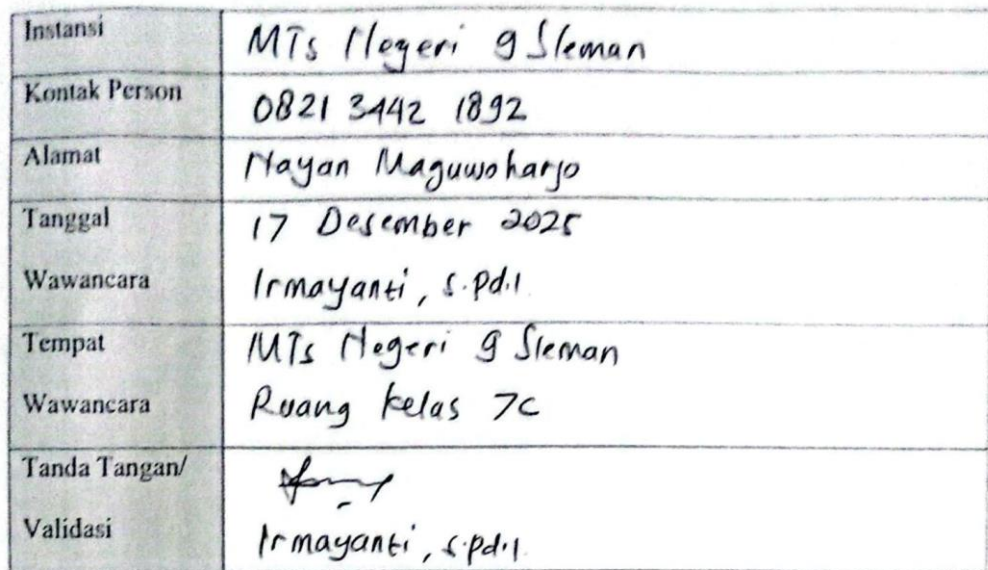 Instansi MTs Negeri 9 Sleman
Kontak Person 0821 3442 1892
Alamat Nayan Maguwoharjo
Tanggal 17 Desember 2025
Wawancara Irmayanti, S.Pd.I
Tempat MTs Negeri 9 Sleman
Wawancara Ruang kelas 7C
Tanda Tangan/
Validasi Irmayanti, S.Pd.I